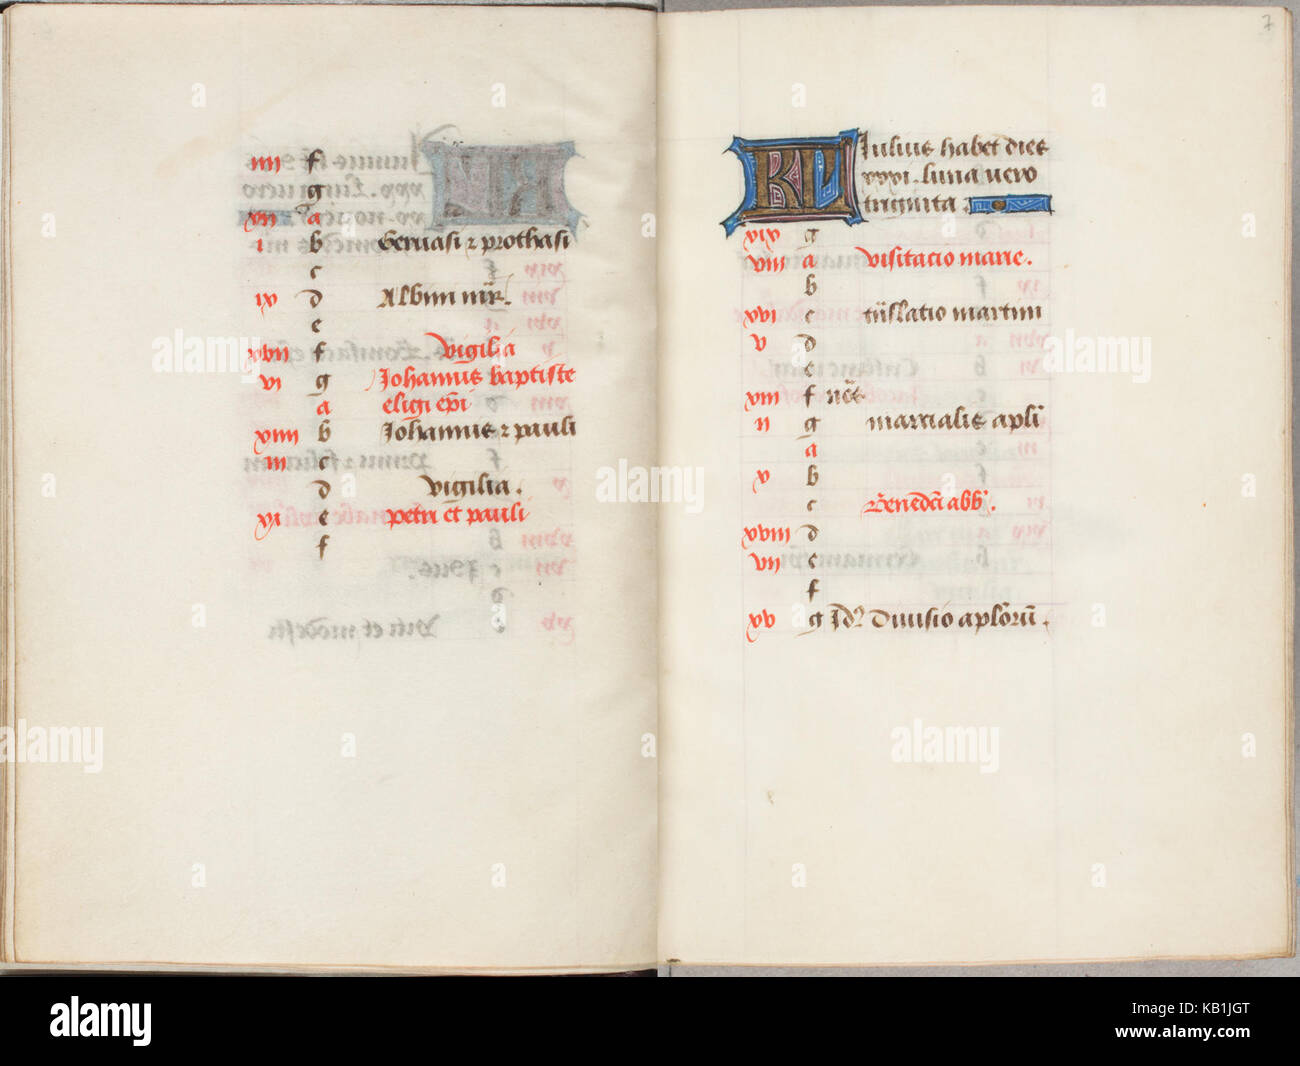 iiii f
g
xii a
i b Gervasi ⁊ prothasi
c
ix d Albini mr̄.
e
xvii f vigilia
vi g Johannis baptiste
a eligi ep̄i
xiiii b Johannis ⁊ pauli
iii c
d vigilia.
xi e petri et pauli
f
7
KL Iulius habet dies
xxxi. luna vero
triginta
xix g
viii a visitacio marie.
b
xvi c trāslatio martini
v d
e
xiii f no͞e
ii g marcialis apl̄i
a
v b
c Benedc̄i abb̄.
xviii d
vii e
f
xv g Id᷒ Divisio aplōrū.
alamy
a
alamy
Image ID: KB1JGT
www.alamy.com